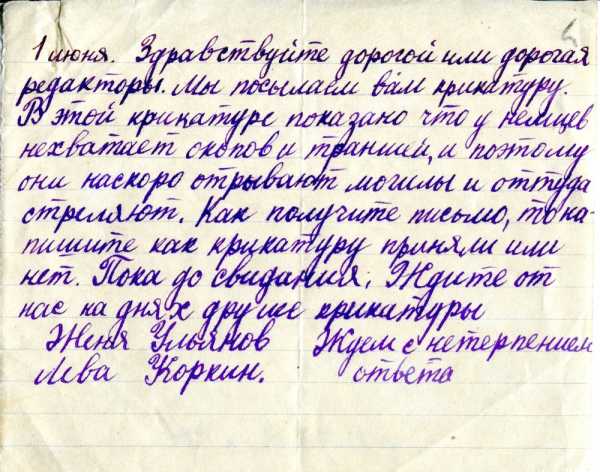 1 июня. Здравствуйте дорогой или дорогая
редакторы. Мы посылаем вам крикатуру.
В этой крикатуре показано что у немцев
нехватает окопов и траншей, и поэтому
они наскоро отрывают могилы и оттуда
стреляют. Как получите письмо, то на-
пишите как крикатуру приняли или
нет. Пока до свидания, Ждите от
нас на днях другие крикатуры
Женя Ульянов Ждем с нетерпением
Лева Коркин. ответа